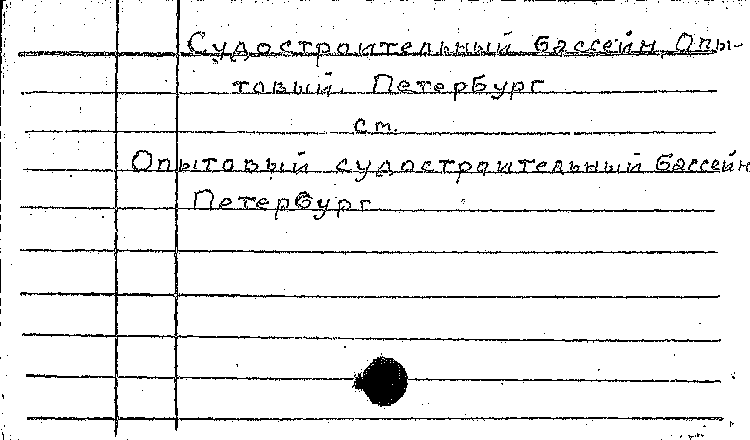 Судостроительный бассейн, Опы-
товый. Петербург
см.
Опытовый судостроительный бассейн
Петербург